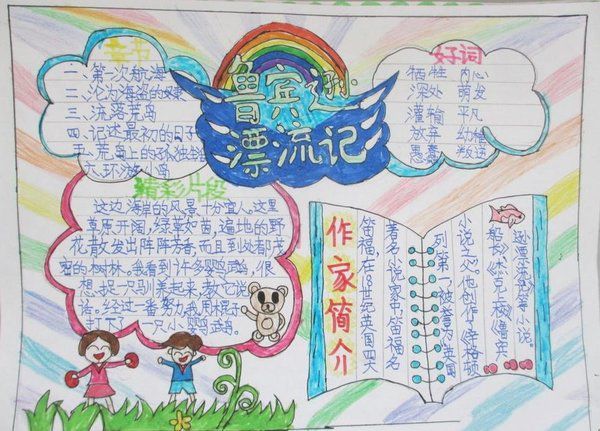 鲁宾逊
漂流记
章节
一、第一次航海
二、沦为海盗的奴隶
三、流落荒岛
四、记述最初的日子
五、荒岛上的孤独生
六、环游小岛
好词
牺牲 内心
深处 萌发
灌输 平凡
放弃 幼稚
愚蠢 叛逆
精彩片段
这边海岸的风景十分宜人。这里
草原开阔,绿草如茵,遍地的野
花散发出阵阵芳香,而且到处都茂
密的树林。我看到许多鹦鹉,很
想捉一只驯养起来,教它说
话。经过一番努力,我用棍子
打下了一只小鹦鹉。
作家简介
笛福,在18世纪英国四大
著名小说家中笛福名
列第一,被誉为英国
小说之父他创作《辛格顿
船长》《杰克上校》《鲁宾
逊漂流记》等小说。